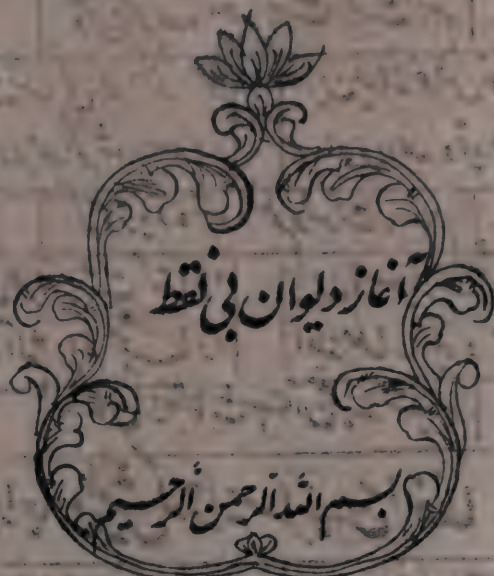 آغاز دیوان بی نقط
بسم الله الرحمن الرحیم